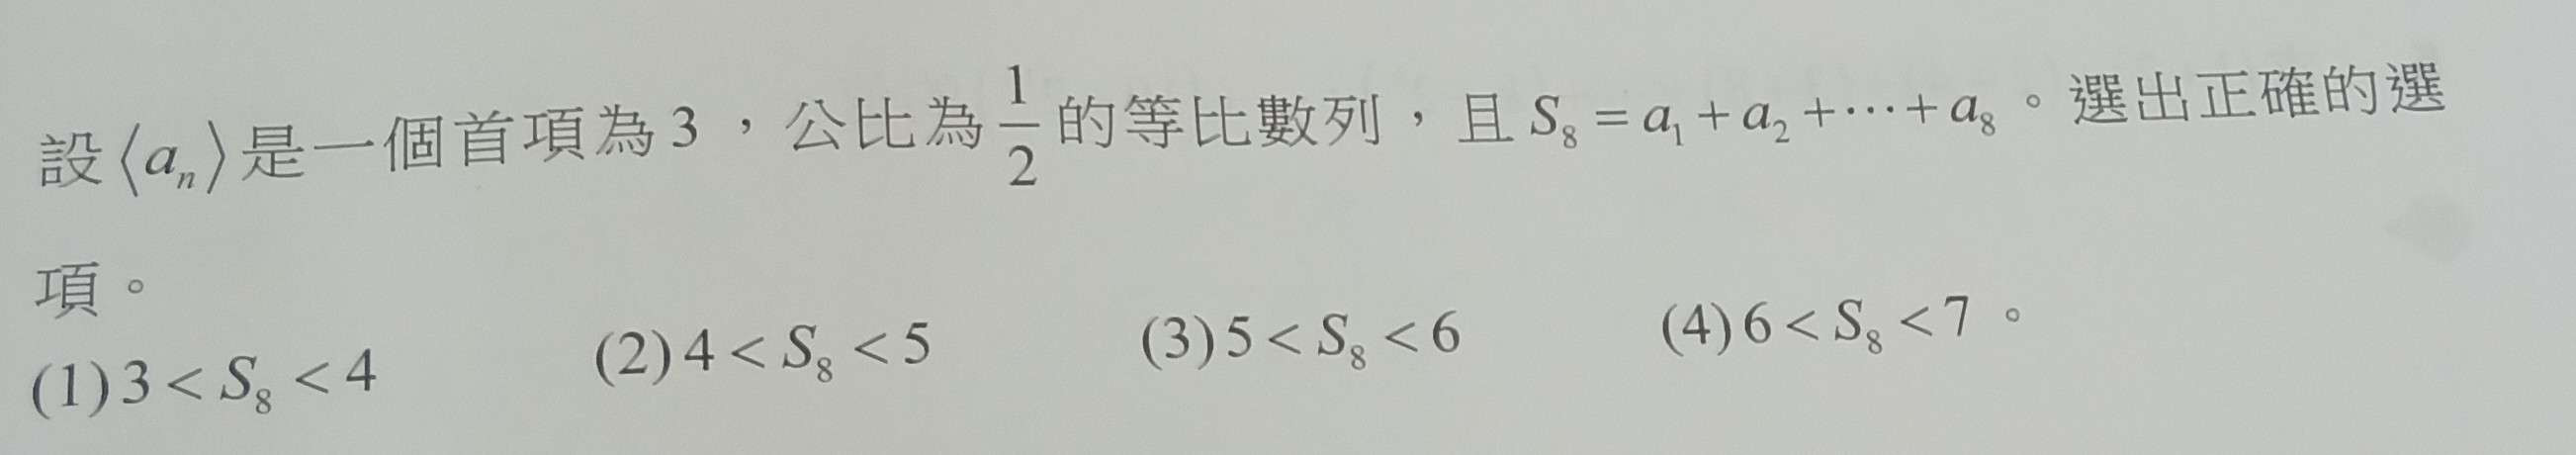 設⟨aₙ⟩是一個首項為3，公比為1/2的等比數列，且S₈=a₁+a₂+⋯+a₈。選出正確的選
項。
(1)3<S₈<4 (2)4<S₈<5 (3)5<S₈<6 (4)6<S₈<7。